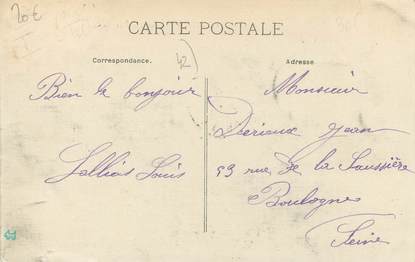 20€
CARTE POSTALE
Correspondance.
42
Adresse
Bien le bonjour
Louis
Monsieur
Derieux Jean
59 rue de la Saussière
Boulogne
Seine